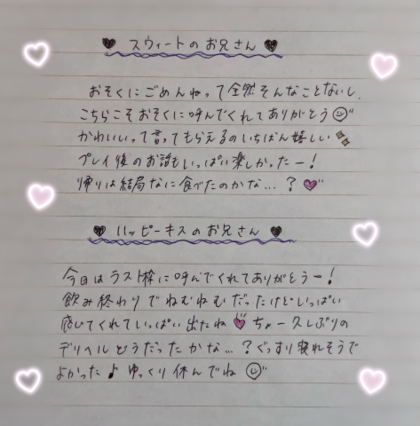 ♥ スウィートのお兄さん ♥
おそくにごめんねって全然そんなことないし、
こちらこそおそくに呼んでくれてありがとう☺
かわいいって言ってもらえるのいちばん嬉しい✨
プレイ後のお話もいっぱい楽しかったー！
帰りは結局なに食べたのかな…？💘
♥ ハッピーキスのお兄さん ♥
今日はラスト枠に呼んでくれてありがとうー！
飲み終わりでねむねむだったけどいっぱい
感じてくれていっぱい出たね💘ちょー久しぶりの
デリヘルどうだったかな…？ぐっすり寝れそうで
よかった♪ゆっくり休んでね☺